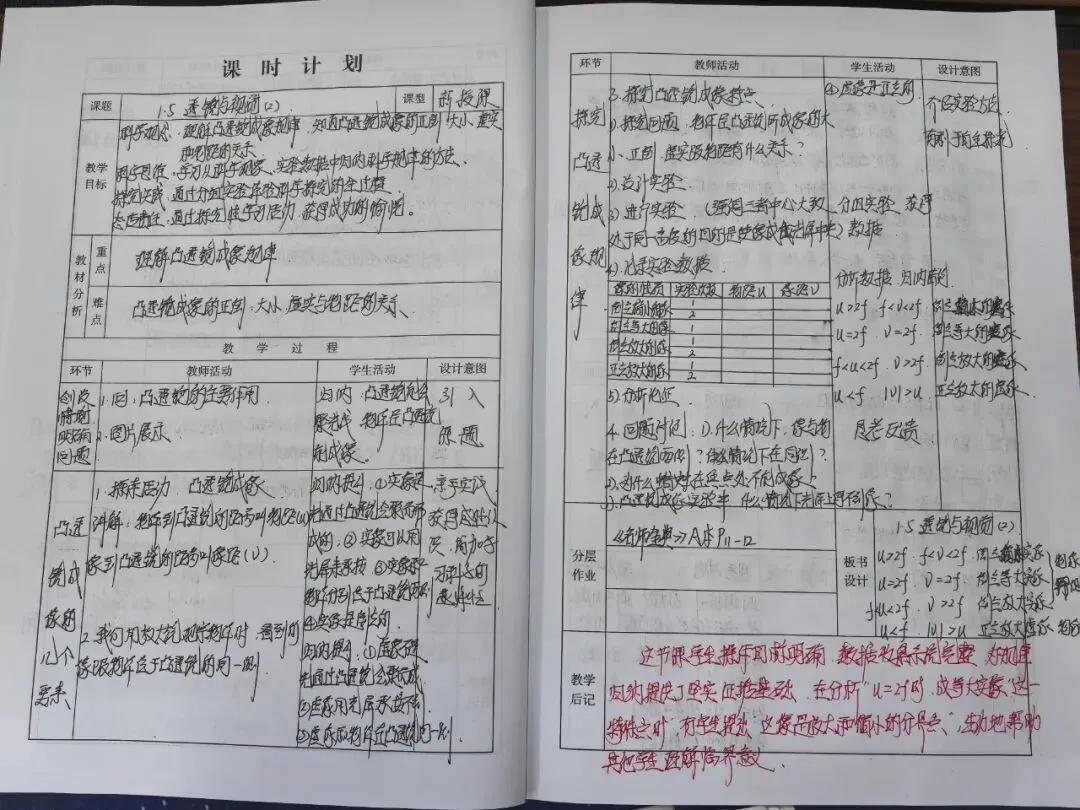 课时计划
课题 1.5 透镜与视图(2) 课型 新授课
教学目标
科学观念：理解凸透镜成像规律，知道凸透镜成像的正倒、大小、虚实
和物距的关系
科学思维：学习从科学现象、实验数据中归纳科学规律的方法。
探究实践：通过分组实验体验科学探究的全过程
态度责任：通过探究性学习活动，获得成功的愉悦。
教材分析
重点 理解凸透镜成像规律
难点 凸透镜成像的正倒、大小、虚实与物距的关系
教学过程
环节 教师活动 学生活动 设计意图
创设情境
问题
1. 问：凸透镜的主要作用
2. 图片展示
归纳：凸透镜能会
聚光线
引入
课题
凸透镜成像的几个要素
1. 探索活动 凸透镜成像
讲解：物体到凸透镜的距离叫物距(u)
像到凸透镜的距离叫像距(v)
2. 我们用放大镜观察物体时，看到的
像跟物体位于凸透镜的同一侧
归纳提升：①实像是
光通过凸透镜会聚而
成的；②实像可以用
光屏来承接 ③实像和
物体分别位于凸透镜两侧
④实像是倒立的
归纳提升：①虚像
②虚像用光屏承接不到
③虚像和物体在凸透镜同一侧
亲手实践
获得感性认
识
环节 教师活动 学生活动 设计意图
探究凸透镜成像规律
3. 探究凸透镜成像特点
1) 探究问题：物体在凸透镜所成像的大
小、正倒、虚实跟物距有什么关系？
2) 设计实验
3) 进行实验 (强调三者中心大致
处于同一高度的目的是使像成在光屏中央)
4) 记录实验数据
像的性质 实验次数 物距u 像距v
倒立缩小的实像 1
2
倒立等大的实像 1
倒立放大的实像 1
2
正立放大的虚像 1
2
5) 分析论证
4. 问题讨论：1) 什么情况下，像与物
在凸透镜两侧？什么情况下在同侧？
2) 为什么物体在焦点处不能成像？
3) 凸透镜成像实验中，什么情况下光屏上得不到像？
④虚像是正立的
分组实验，获得
数据
分析数据，归纳规律
u>2f f<v<2f 倒立缩小的实像
u=2f v=2f 倒立等大的实像
f<u<2f v>2f 倒立放大的实像
u<f |v|>u 正立放大的虚像
思考反馈
介绍实验方法
有利于自主探究
分层作业 A本P11-12
板书设计
1.5 透镜与视图(2)
u>2f f<v<2f 倒立缩小实像
u=2f v=2f 倒立等大实像
f<u<2f v>2f 倒立放大实像
u<f |v|>u 正立放大虚像
教学后记
这节课学生操作目的明确，数据收集完整，为规律
归纳提供了坚实证据基础。在分析“u=2f时，成等大实像”这一
特殊点时，有学生提出“这像是放大和缩小的分界点”，生动地帮助
其他学生理解临界意义。